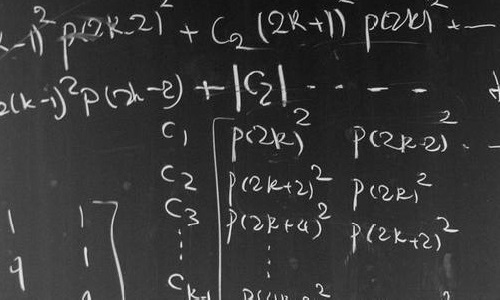 k-1)² p(2k-2)² + C₂ (2k+1)² p(2k)² + ---
2(k-1)² p(2k-2) + |C₂| - - - - -
C₁ p(2k)² p(2k-2)² - -
C₂ p(2k+2)² p(2k)²
C₃ p(2k+4)² p(2k+2)²
1 1
9 1